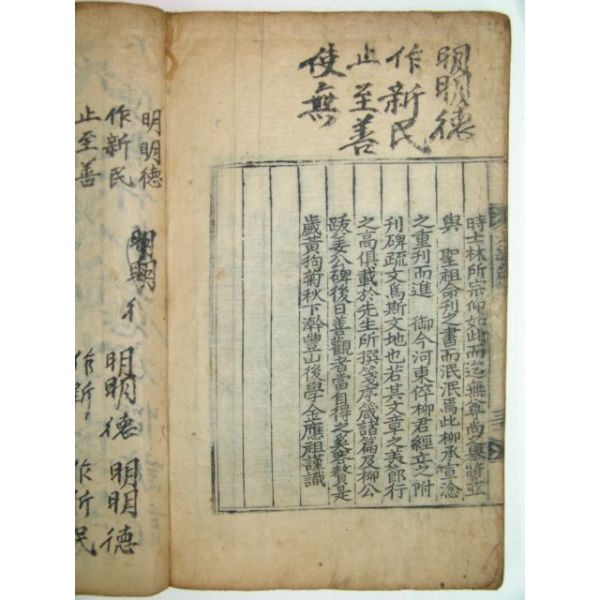 明明德
作新民
止至善
使無
時士林所宗仰如此而迄無尊尚之擧將並
與 聖祖命刊之書而泯泯焉此柳承宣淰
之重刊而進 御今河東倅柳君經立之附
刊碑疏文爲斯文地也若其文章之美節行
之高俱載於先生所撰箋序箴諸篇及柳公
跋姜公碑後日善觀者當自得之奚贅是
歲黃狗菊秋下澣豐山後學金應祖謹識
明明德
作新民
止至善
明明
明明德
作新
明明德
作新民